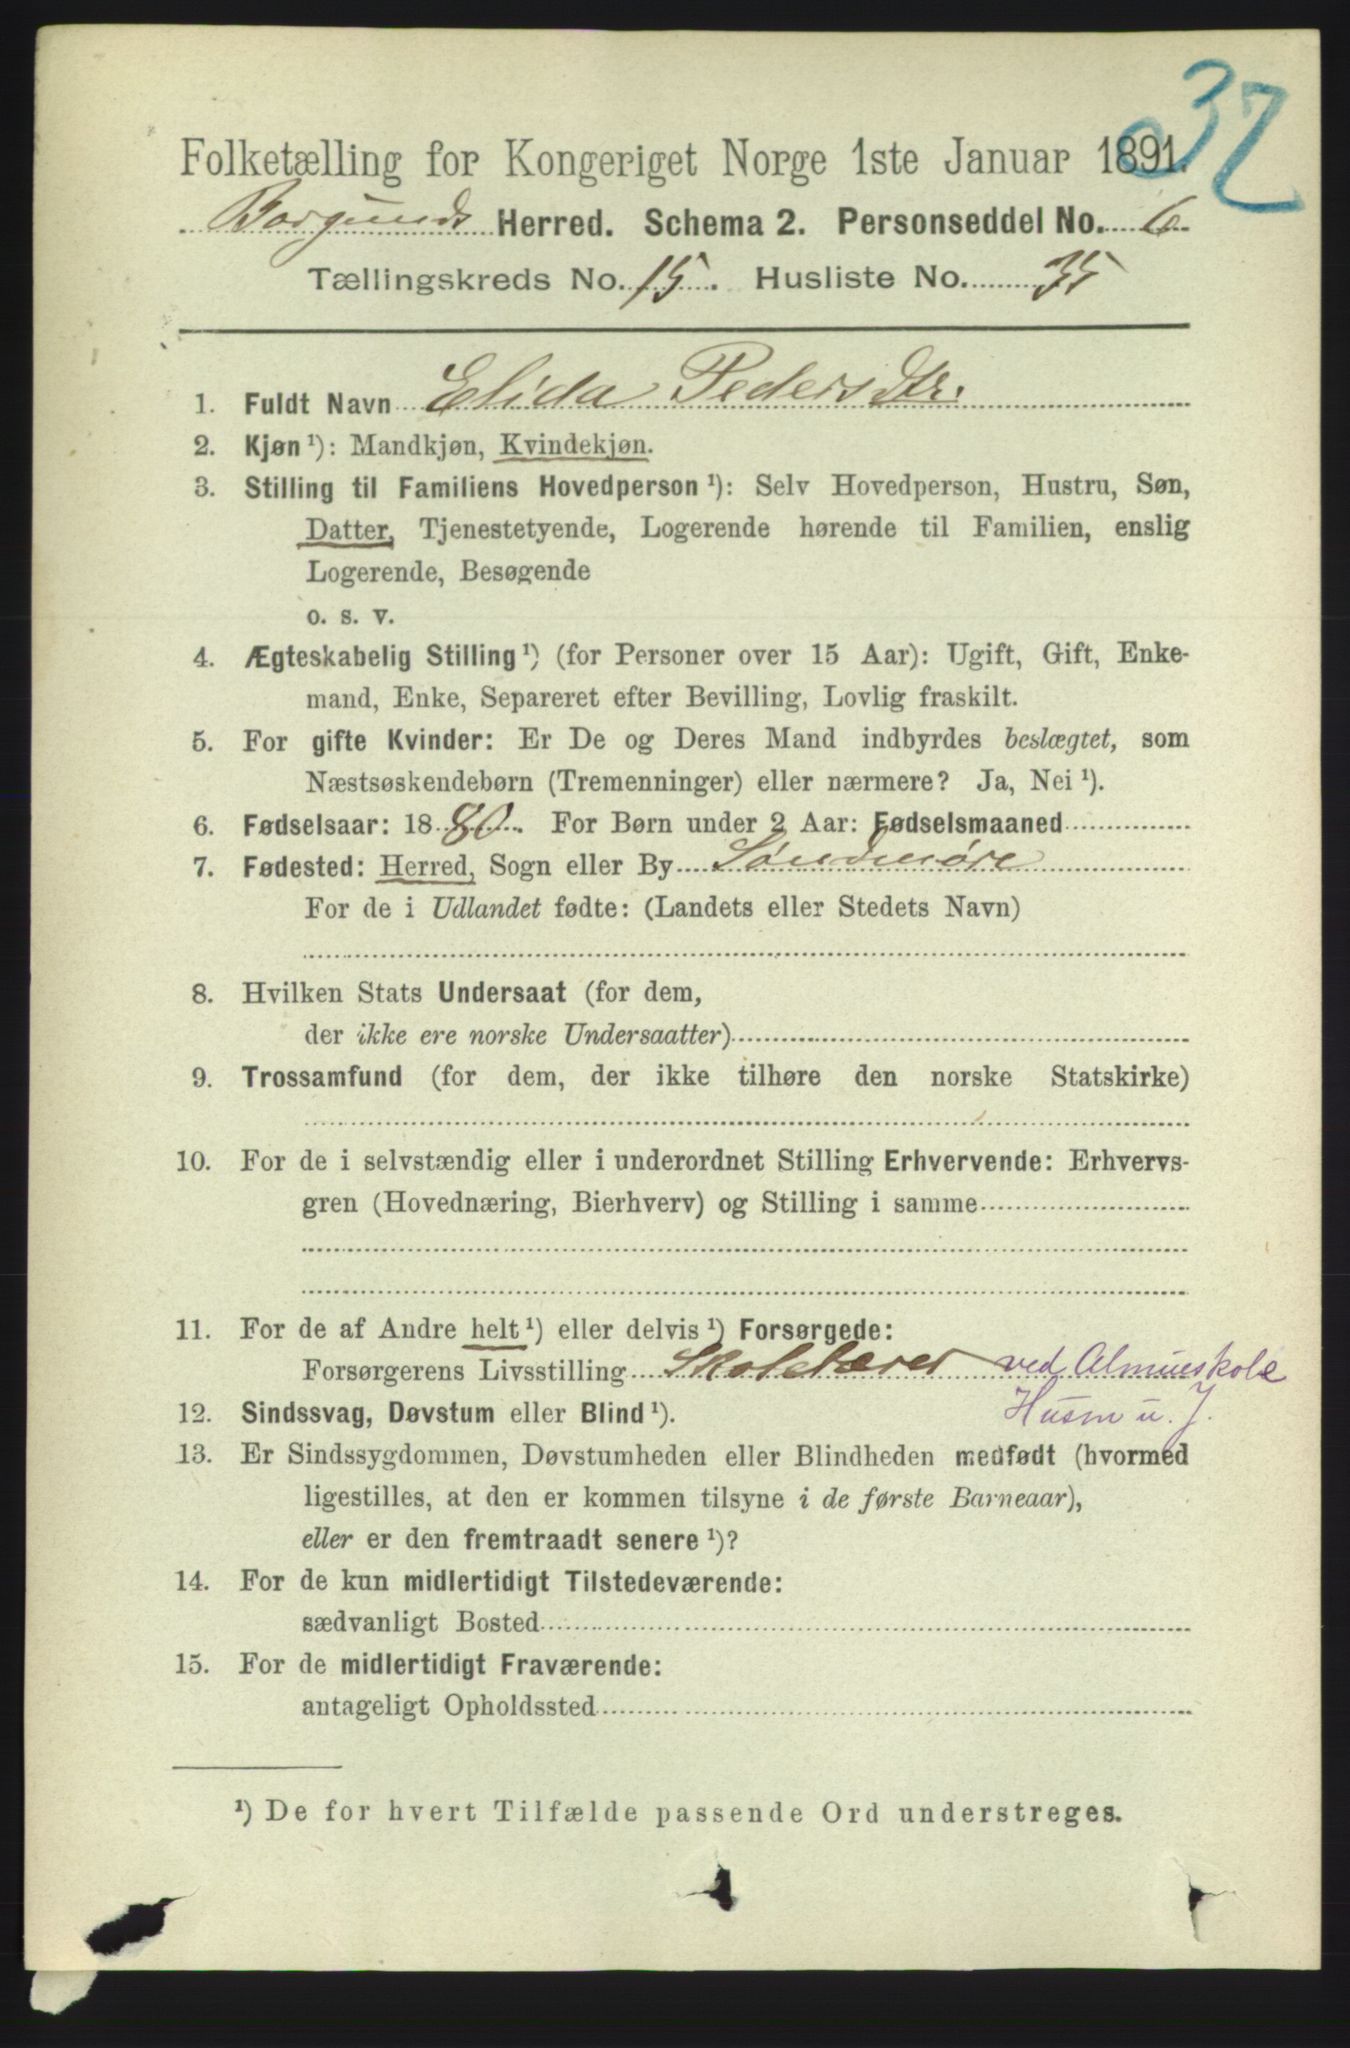 32
Folketælling for Kongeriget Norge 1ste Januar 1891.
Borgunds Herred. Schema 2. Personseddel No. 6
Tællingskreds No. 15. Husliste No. 35
1. Fuldt Navn Elida Pedersdtr.
2. Kjøn ¹): Mandkjøn, Kvindekjøn.
3. Stilling til Familiens Hovedperson ¹): Selv Hovedperson, Hustru, Søn,
Datter, Tjenestetyende, Logerende hørende til Familien, enslig
Logerende, Besøgende
o. s. v.
4. Ægteskabelig Stilling ¹) (for Personer over 15 Aar): Ugift, Gift, Enke-
mand, Enke, Separeret efter Bevilling, Lovlig fraskilt.
5. For gifte Kvinder: Er De og Deres Mand indbyrdes beslægtet, som
Næstsøskendebørn (Tremenninger) eller nærmere? Ja, Nei ¹).
6. Fødselsaar: 1880. For Børn under 2 Aar: Fødselsmaaned
7. Fødested: Herred, Sogn eller By Søndmøre
For de i Udlandet fødte: (Landets eller Stedets Navn)
8. Hvilken Stats Undersaat (for dem,
der ikke ere norske Undersaatter)
9. Trossamfund (for dem, der ikke tilhøre den norske Statskirke)
10. For de i selvstændig eller i underordnet Stilling Erhvervende: Erhvervs-
gren (Hovednæring, Bierhverv) og Stilling i samme
11. For de af Andre helt ¹) eller delvis ¹) Forsørgede:
Forsørgerens Livsstilling Skolelærer ved Almueskole
Husm u. J.
12. Sindssvag, Døvstum eller Blind ¹).
13. Er Sindssygdommen, Døvstumheden eller Blindheden medfødt (hvormed
ligestilles, at den er kommen tilsyne i de første Barneaar),
eller er den fremtraadt senere ¹)?
14. For de kun midlertidigt Tilstedeværende:
sædvanligt Bosted
15. For de midlertidigt Fraværende:
antageligt Opholdssted
¹) De for hvert Tilfælde passende Ord understreges.